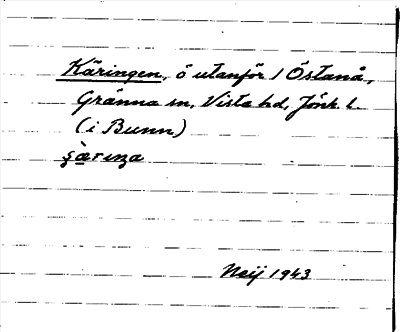 Käringen, ö utanför 1 Östanå,
Gränna sn, Vista hd, Jönk. l.
(i Bunn)
Neij 1943